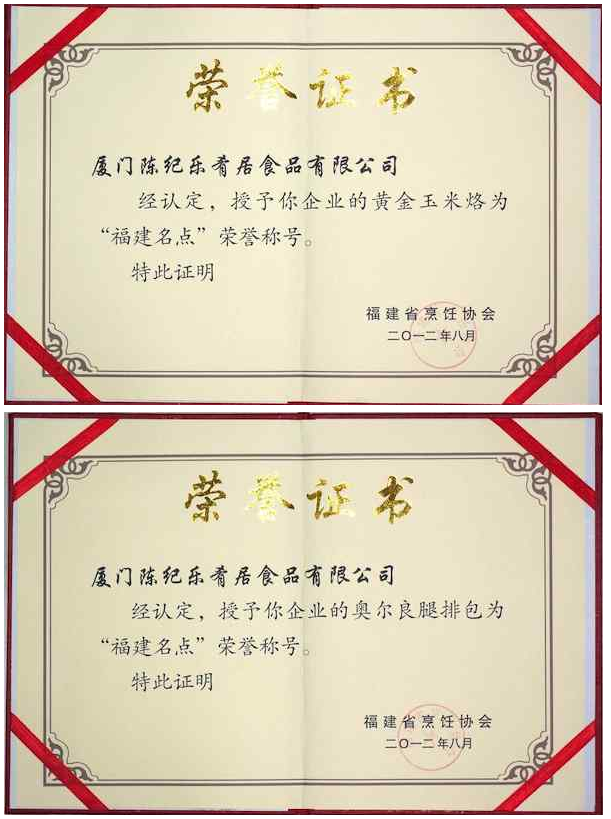 荣誉证书
厦门陈纪乐肴居食品有限公司
经认定，授予你企业的黄金玉米烙为
“福建名点”荣誉称号。
特此证明
福建省烹饪协会
二〇一二年八月
荣誉证书
厦门陈纪乐肴居食品有限公司
经认定，授予你企业的奥尔良腿排包为
“福建名点”荣誉称号。
特此证明
福建省烹饪协会
二〇一二年八月